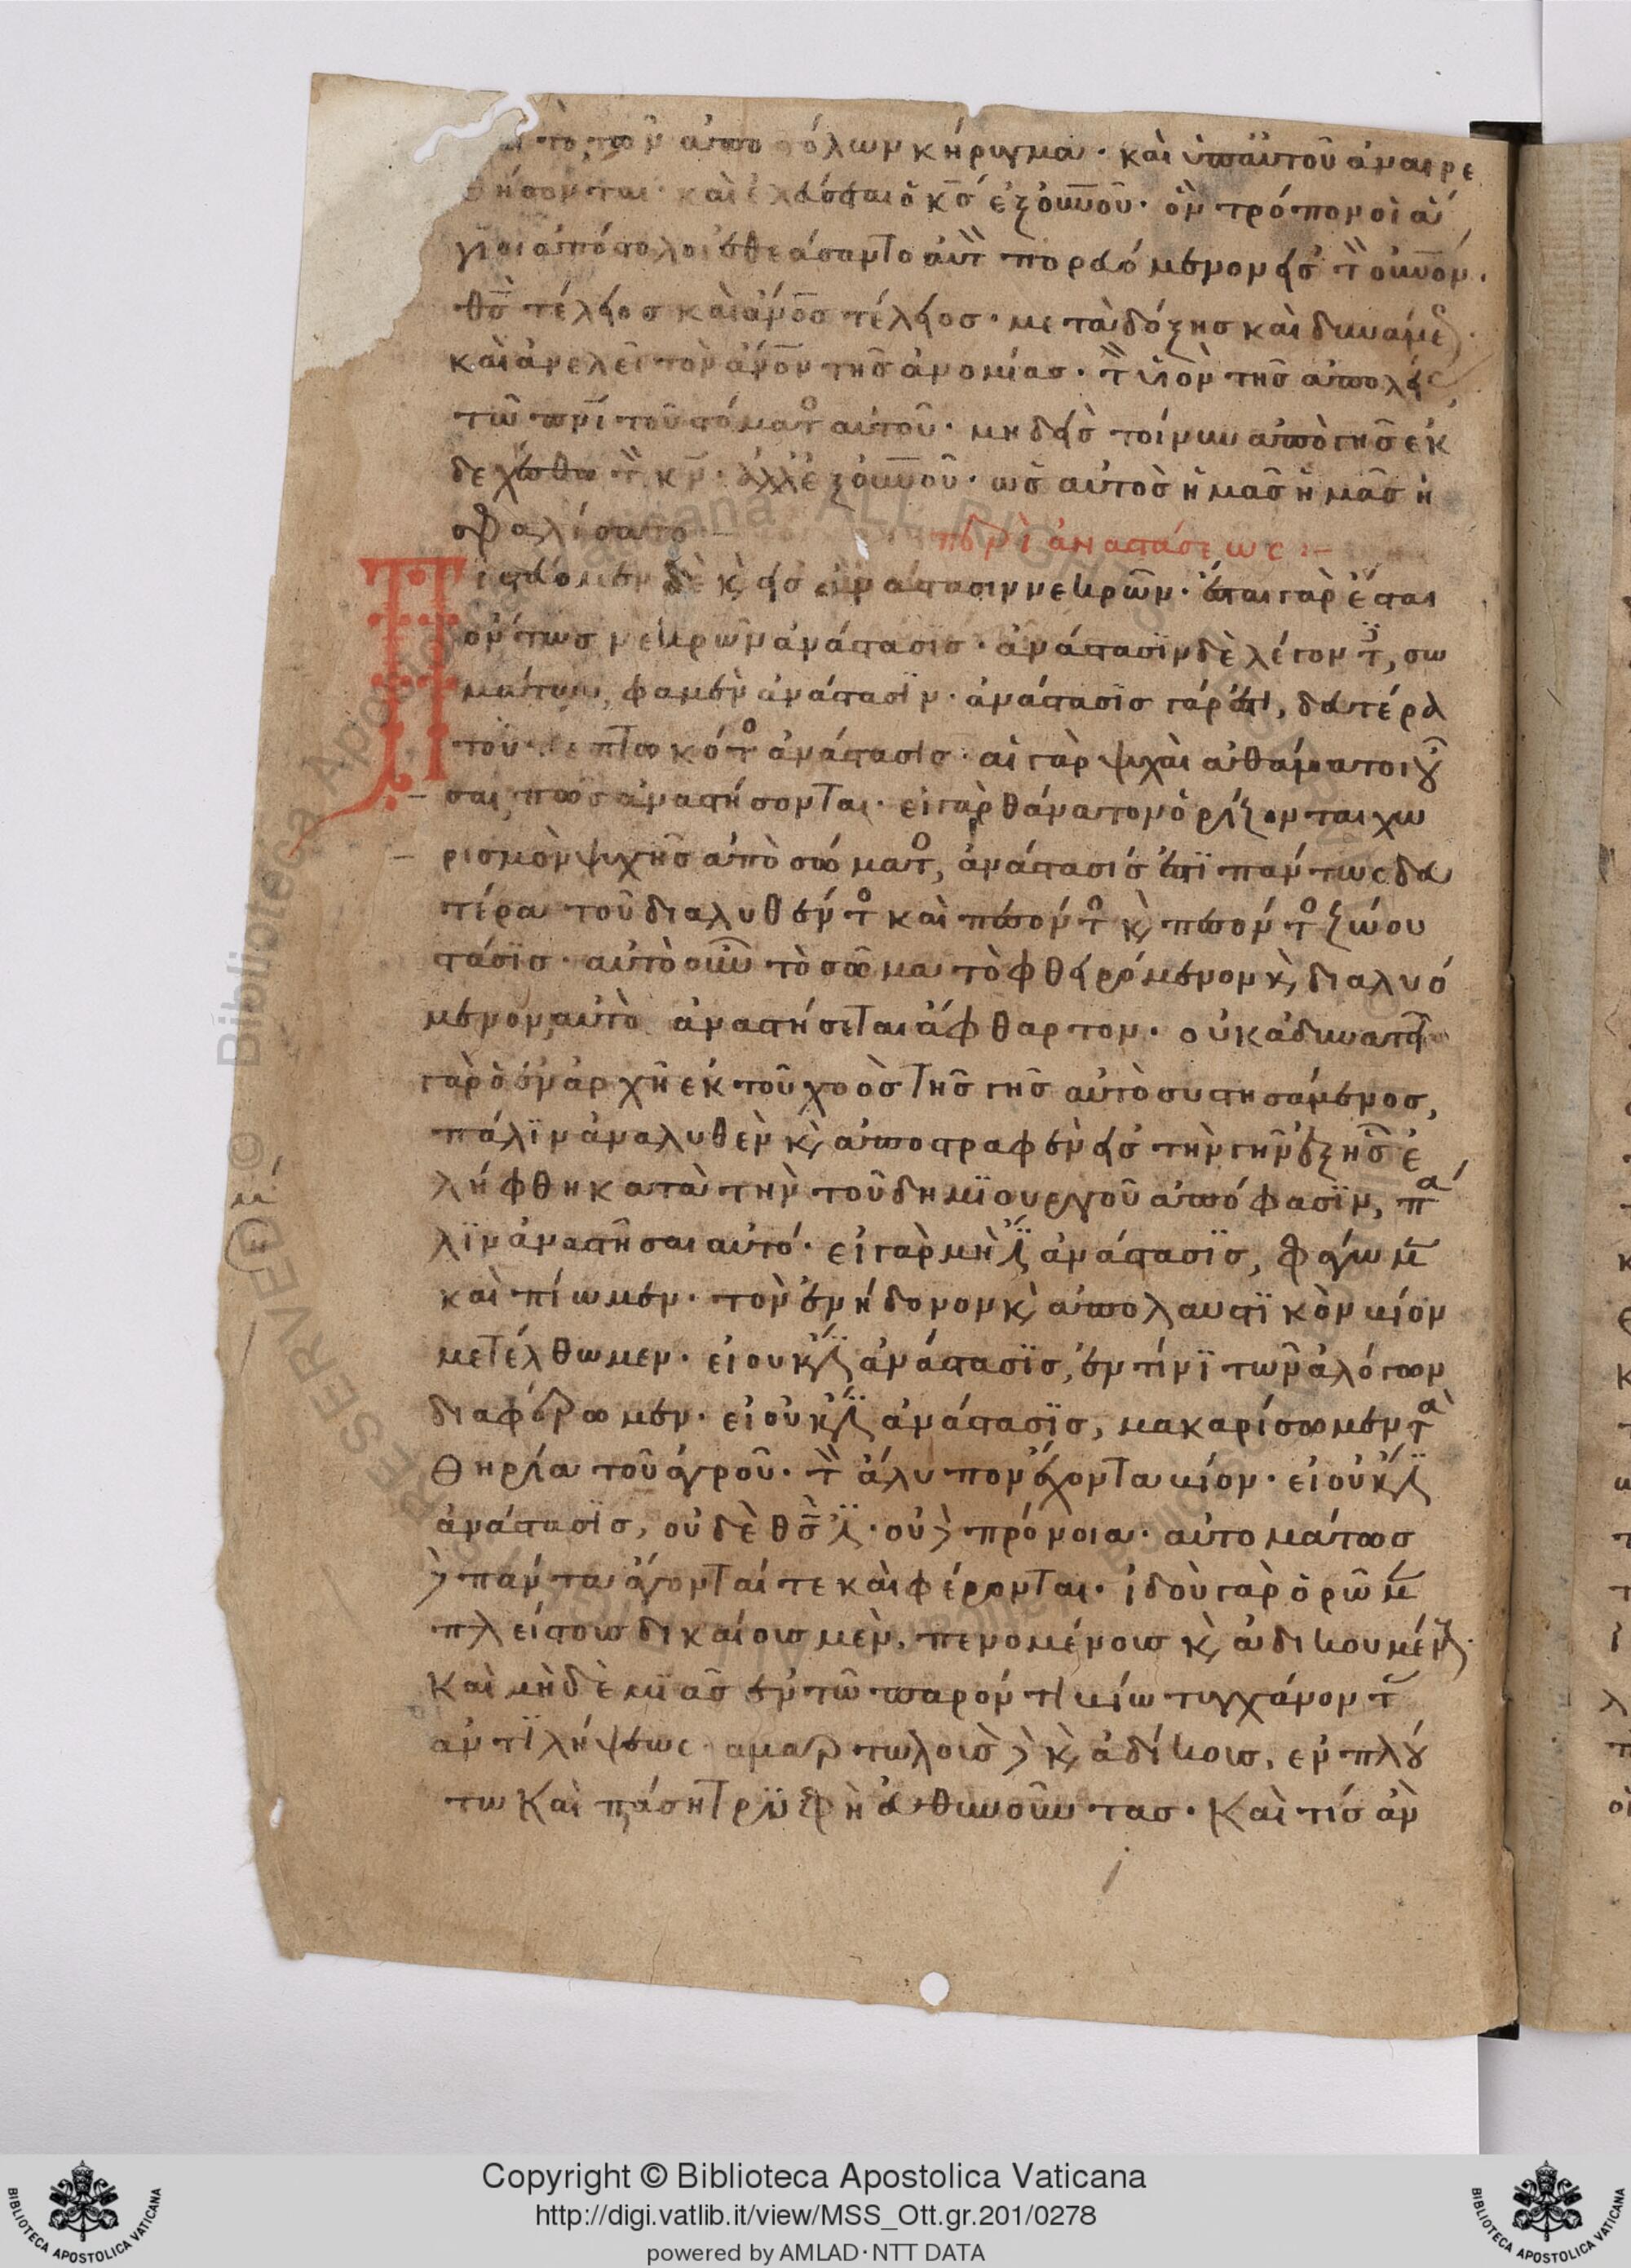 τὸ τῶν ἀποστόλων κήρυγμα· καὶ ὑπ' αὐτοῦ ἀναιρε
θήσονται· καὶ ἐλεύσεται ὁ κ̅ς̅ ἐξ οὐ̅νοῦ· ὃν τρόπον οἱ ἅ
γιοι ἀπόστολοι ἐθεάσαντο αὐτ πορευόμενον εἰς τ οὐ̅νόν.
θ̅ς̅ τέλειος καὶ ἄν̅ος τέλειος· μετὰ δόξης καὶ δυνάμε
καὶ ἀνελεῖ τὸν ἄν̅ον τῆς ἀνομίας· τ υἱὸν τῆς ἀπωλεί
τῶ πν̅ι τοῦ στόματ αὐτοῦ· μηδεὶς τοίνυν ἀπὸ γῆς ἐκ
δεχέσθω τ κ̅ν̅· ἀλλ' ἐξ οὐ̅νοῦ· ὡς αὐτὸς ἡμᾶς ἡμᾶς ἠ
σφαλίσατο
περὶ ἀναστάσεως :–
Πιστεύομεν δὲ κ εἰς ἀνάστασιν νεκρῶν· ἔσται γὰρ ἔσται
ὄντως νεκρῶν ἀνάστασις· ἀνάστασϊν δὲ λέγοντ, σω
μάτων, φαμὲν ἀνάστασϊν· ἀνάστασϊς γάρ ἐστι, δευτέρα
τοῦ πεπτωκότ ἀνάστασις· αἱ γὰρ ψυχαὶ ἀθάνατοι οὖ
σαι, πῶς ἀναστήσονται· εἰ γὰρ θάνατον ὁρίζονται χω
ρισμὸν ψυχῆς ἀπὸ σώματ, ἀνάστασις ἐστϊ πάντως δευ
τέρα τοῦ διαλυθέντ καὶ πεσόντ κ πεσόντ ζώου
στάσϊς· αὐτὸ οὖν τὸ σῶμα τὸ φθειρόμενον κ διαλυό
μενον, αὐτὸ ἀναστήσεται ἄφθαρτον· οὐκ ἀδυνατεῖ
γὰρ ὁ ἐν ἀρχῆ ἐκ τοῦ χοὸς τῆς γῆς αὐτὸ συστησάμενος,
πάλϊν ἀναλυθὲν κ ἀποστραφὲν εἰς τὴν γῆν ἐξ ἧς ἐ
λήφθη κατὰ τὴν τοῦ δημϊουργοῦ ἀπόφασϊν, πά
λϊν ἀναστῆσαι αὐτό· εἰ γὰρ μὴ ἔστϊν ἀνάστασϊς, φάγωμ
καὶ πίωμεν· τὸν ἐνήδονον κ ἀπολαυστϊκὸν βίον
μετέλθωμεν· εἰ οὐκ ἔστϊν ἀνάστασϊς, ἐν τίνϊ τῶν ἀλόγων
διαφέρωμεν· εἰ οὐκ ἔστϊν ἀνάστασϊς, μακαρίσωμεν τὰ
θηρία τοῦ ἀγροῦ· τ ἄλυπον ἔχοντα βίον· εἰ οὐκ ἔστϊν
ἀνάστασϊς, οὐδὲ θ̅ς̅ ἔστϊν· οὐδὲ πρόνοια· αὐτομάτως
δὲ πάντα ἄγονταί τε καὶ φέρονται· ἰδοὺ γὰρ ὁρῶμ
πλείστους δικαίους μὲν, πενομένους κ ἀδικουμέν·
καὶ μὴδὲ μϊᾶς ἐν τῶ παρόντι βίω τυγχάνοντ
ἀντϊλήψεως· ἁμαρτωλοὺς δὲ κ ἀδίκους, ἐν πλού
τω καὶ πάση τρϋφῆ εὐθυνοῦντας· καὶ τίς ἂν
Copyright © Biblioteca Apostolica Vaticana
http://digi.vatlib.it/view/MSS_Ott.gr.201/0278
powered by AMLAD·NTT DATA